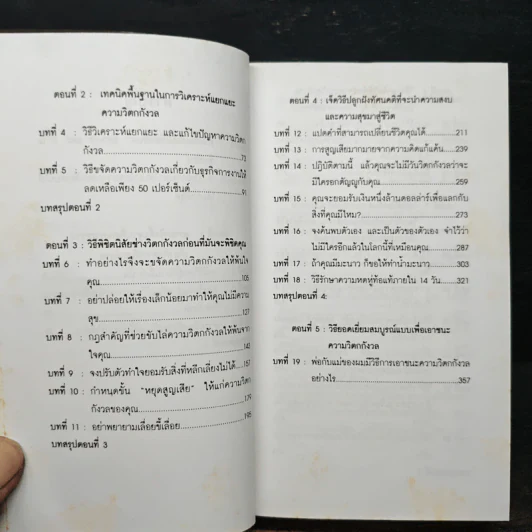 ตอนที่ 2 : เทคนิคพื้นฐานในการวิเคราะห์แยกแยะ
ความวิตกกังวล
บทที่ 4 : วิธีวิเคราะห์แยกแยะ และแก้ไขปัญหาความวิตก
กังวล....................73
บทที่ 5 : วิธีขจัดความวิตกกังวลเกี่ยวกับธุรกิจการงานให้
ลดเหลือเพียง 50 เปอร์เซ็นต์....................91
บทสรุปตอนที่ 2
ตอนที่ 3 : วิธีพิชิตนิสัยช่างวิตกกังวลก่อนที่มันจะพิชิตคุณ
บทที่ 6 : ทำอย่างไรจึงจะขจัดความวิตกกังวลให้พ้นใจ
คุณ....................105
บทที่ 7 : อย่าปล่อยให้เรื่องเล็กน้อยมาทำให้คุณไม่มีความ
สุข....................127
บทที่ 8 : กฎสำคัญที่ช่วยขับไล่ความวิตกกังวลให้พ้นจาก
ใจคุณ....................143
บทที่ 9 : จงปรับตัวทำใจยอมรับสิ่งที่หลีกเลี่ยงไม่ได้......157
บทที่ 10 : กำหนดขั้น "หยุดสูญเสีย" ให้แก่ความวิตก
กังวลของคุณ....................179
บทที่ 11 : อย่าพยายามเลื่อยขี้เลื่อย....................195
บทสรุปตอนที่ 3
ตอนที่ 4 : เจ็ดวิธีปลูกฝังทัศนคติที่จะนำความสงบ
และความสุขมาสู่ชีวิต
บทที่ 12 : แปดคำที่สามารถเปลี่ยนชีวิตคุณได้............211
บทที่ 13 : การสูญเสียมากมายจากความคิดแก้แค้น........239
บทที่ 14 : ปฏิบัติตามนี้ แล้วคุณจะไม่มีวันวิตกกังวลว่าจะ
มีใครอกตัญญูกับคุณ....................259
บทที่ 15 : คุณจะยอมรับเงินหนึ่งล้านดอลล่าร์เพื่อแลกกับ
สิ่งที่คุณมีไหม?....................273
บทที่ 16 : จงค้นพบตัวเอง และเป็นตัวของตัวเอง จำไว้ว่า
ไม่มีใครอีกแล้วในโลกนี้ที่เหมือนคุณ............287
บทที่ 17 : ถ้าคุณมีมะนาว ก็ขอให้ทำน้ำมะนาว..........303
บทที่ 18 : วิธีรักษาความหดหู่ท้อแท้ภายใน 14 วัน........321
บทสรุปตอนที่ 4:
ตอนที่ 5 : วิธียอดเยี่ยมสมบูรณ์แบบเพื่อเอาชนะ
ความวิตกกังวล
บทที่ 19 : พ่อกับแม่ของผมมีวิธีการเอาชนะความวิตกกังวล
อย่างไร....................357